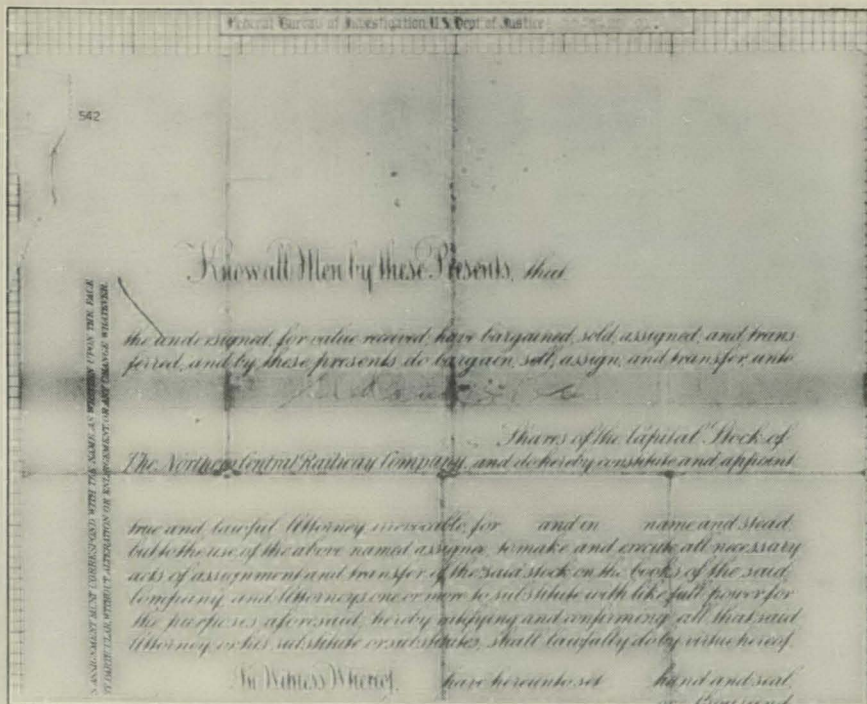 Federal Bureau of Investigation, U.S. Dept of Justice
542
Know all Men by these Presents, that
the undersigned, for value received, have bargained, sold, assigned, and trans
ferred, and by these presents do bargain, sell, assign, and transfer, unto
Shares of the Capital Stock of
The Northern Central Railway Company, and do hereby constitute and appoint
true and lawful Attorney irrevocable, for and in name and stead,
but to the use of the above named assignee, to make and execute all necessary
acts of assignment and transfer of the said stock on the books of the said
Company, and Attorneys one or more to substitute with like full power for
the purposes aforesaid, hereby ratifying and confirming all that said
Attorney or his substitute or substitutes, shall lawfully do by virtue hereof.
In Witness Whereof, have hereunto set hand and seal,
ASSIGNMENT MUST CORRESPOND WITH THE NAME AS WRITTEN UPON THE FACE
PARTICULAR, WITHOUT ALTERATION OR ENLARGEMENT OR ANY CHANGE WHATEVER.